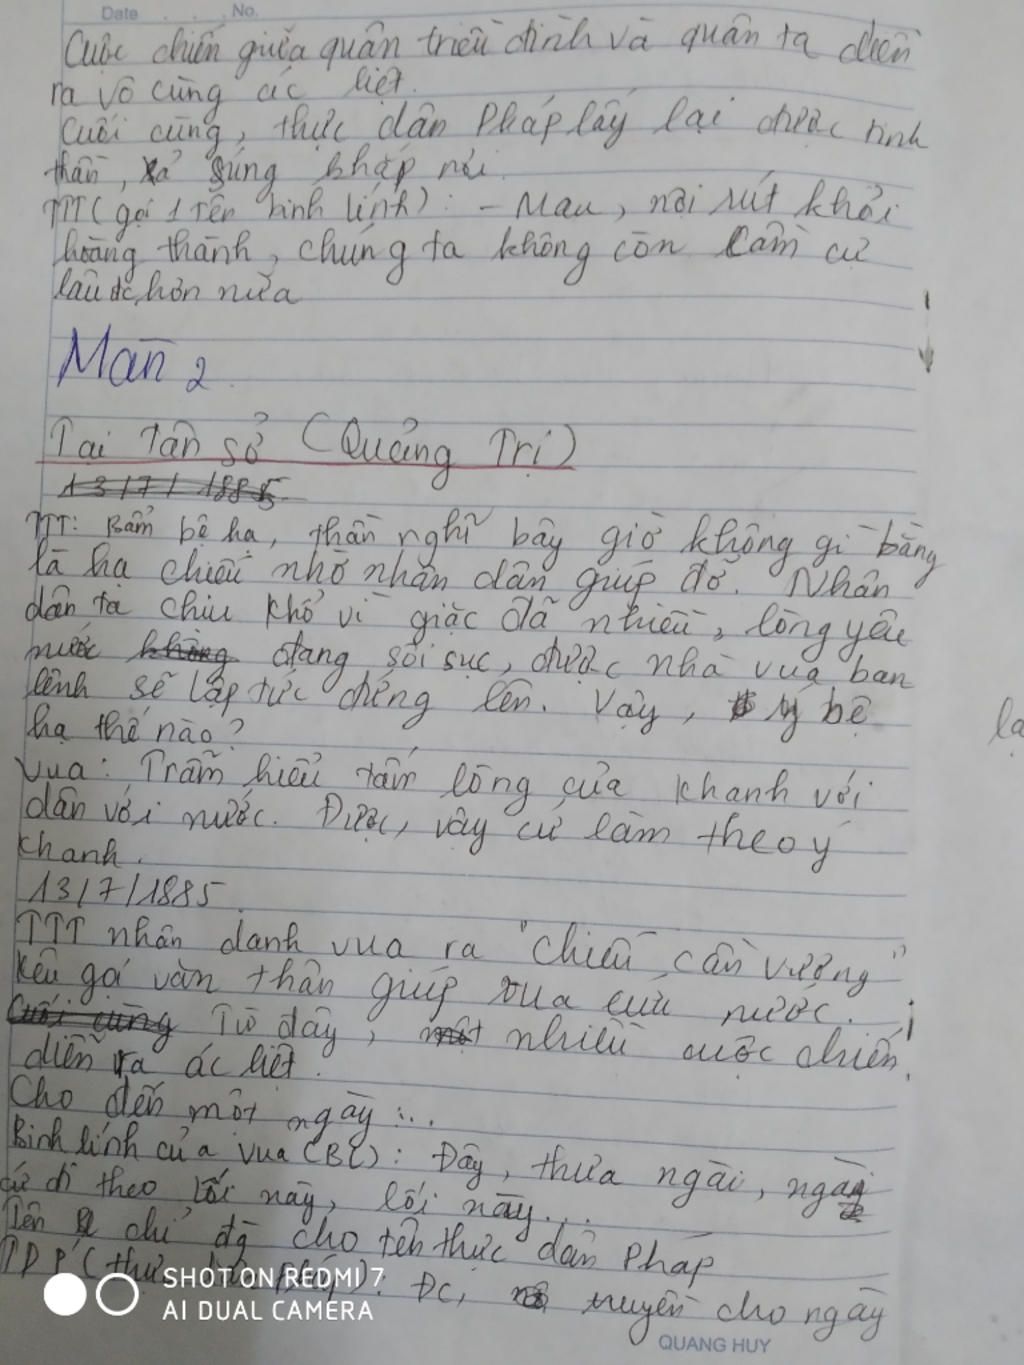 Date No.
Cuộc chiến giữa quân triều đình và quân ta diễn
ra vô cùng ác liệt.
Cuối cùng, thực dân Pháp lấy lại được tinh
thần, xả súng khắp nơi.
TTT (gọi 1 tên binh lính): - Mau, nói rút khỏi
hoàng thành, chúng ta không còn cầm cự
lâu đc hơn nữa
Màn 2
Tại Tân sở (Quảng Trị)
13/7/1885
TTT: Bẩm bệ hạ, thần nghĩ bây giờ không gì bằng
là hạ chiếu nhờ nhân dân giúp đỡ. Nhân
dân ta chịu khổ vì giặc đã nhiều, lòng yêu
nước không đang sôi sục, được nhà vua ban
lệnh sẽ lập tức đứng lên. Vậy, ý bệ
hạ thế nào?
Vua: Trẫm hiểu tấm lòng của khanh với
dân với nước. Được, vậy cứ làm theo ý
khanh.
13/7/1885.
TTT nhân danh vua ra "chiếu cần vương"
kêu gọi văn thân giúp vua cứu nước.
Cuối cùng Từ đây, một nhiều cuộc chiến
diễn ra ác liệt.
Cho đến một ngày...
Binh lính của vua (BL): Đây, thưa ngài, ngài
cứ đi theo lối này, lối này...
Tên BL chỉ đg cho tên thực dân Pháp
TDP (thực dân Pháp): Đc, truyền cho ngày
SHOT ON REDMI 7
AI DUAL CAMERA
QUANG HUY